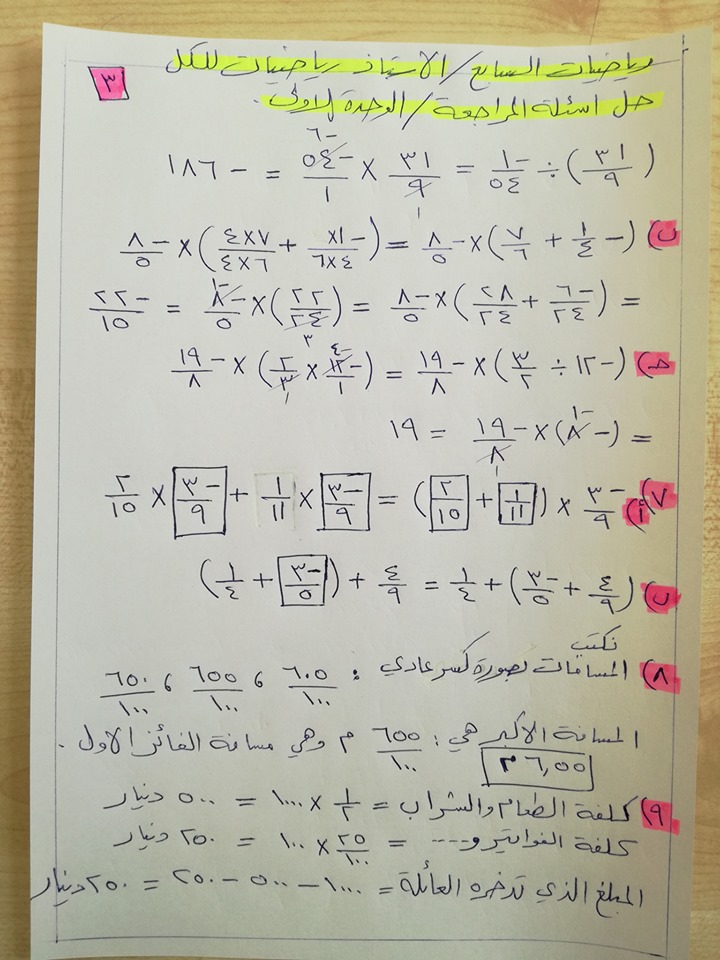 رياضيات السابع / الاستاذ رياضيات للكل
٣
حل اسئلة المراجعة / الوحدة الاولى.
(٣١/٩) ÷ -١/٥٤ = ٣١/٩ × -٥٤/١ = -١٨٦
ب) (-١/٤ + ٧/٦) × -٨/٥ = (-١×٦/٤×٦ + ٧×٤/٦×٤) × -٨/٥
= (-٦/٢٤ + ٢٨/٢٤) × -٨/٥ = (٢٢/٢٤) × -٨/٥ = -٢٢/١٥
جـ) (-١٢ ÷ ٣/٢) × -١٩/٨ = (-١٢/١ × ٢/٣) × -١٩/٨
= (-٨) × -١٩/٨ = ١٩
٧) أ) -٣/٩ × (١/١١ + ٢/١٥) = -٣/٩ × ١/١١ + -٣/٩ × ٢/١٥
ب) (٤/٩ + -٣/٥) + ١/٤ = ٤/٩ + (-٣/٥ + ١/٤)
٨) نكتب المسافات بصورة كسر عادي : ٦٠٥/١٠٠ ، ٦٥٥/١٠٠ ، ٦٥٠/١٠٠
المسافة الأكبر هي : ٦٥٥/١٠٠ م وهي مسافة الفائز الاول.
٦,٥٥ م
٩) كلفة الطعام والشراب = ١/٢ × ١٠٠٠ = ٥٠٠ دينار
كلفة الفواتير و.... = ٢٥/١٠٠ × ١٠٠ = ٢٥٠ دينار
المبلغ الذي تدخره العائلة = ١٠٠٠ - ٥٠٠ - ٢٥٠ = ٢٥٠ دينار